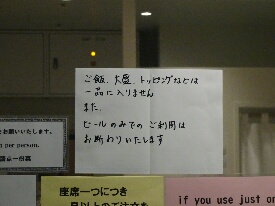 ご飯、大盛、トッピングなどは
一品に入りません
また、
ビールのみでの ご利用は
お断わりいたします
お願いいたします。
per person.
座席一つにつき
if you use just on